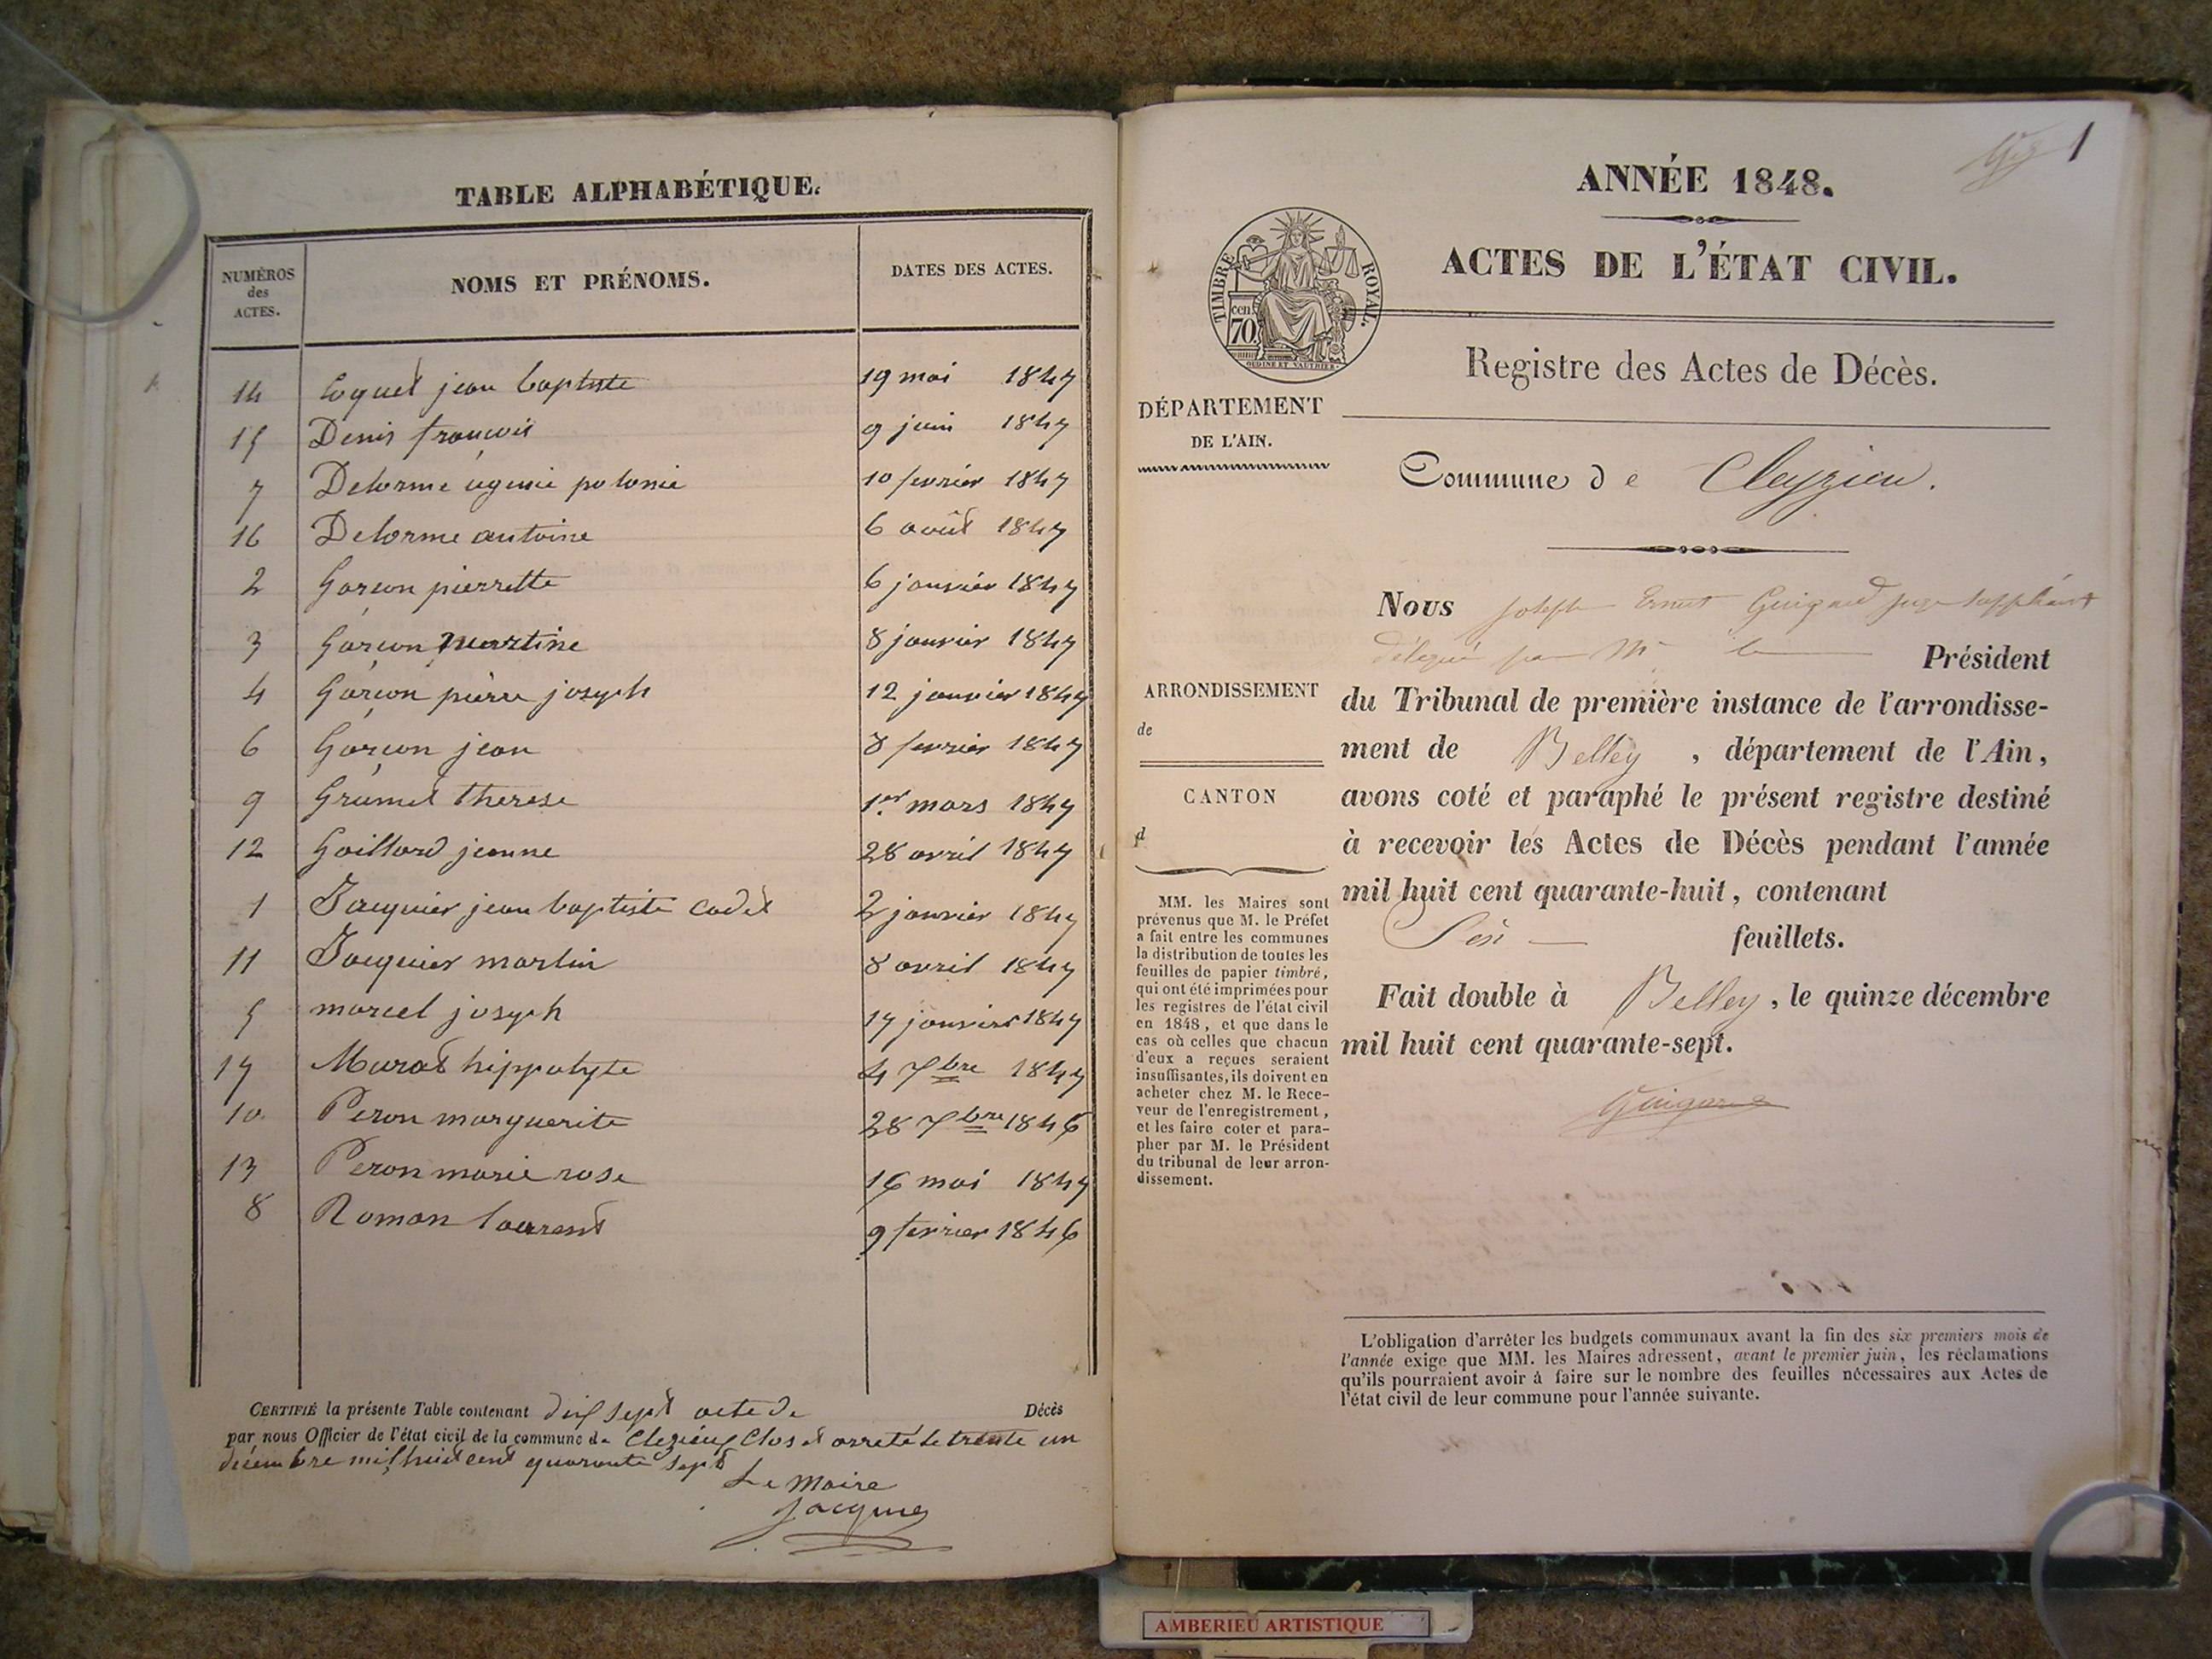 TABLE ALPHABÉTIQUE.
NUMÉROS des ACTES. NOMS ET PRÉNOMS. DATES DES ACTES.
14 Coquet jean baptiste 19 mai 1847
15 Denis françois 9 juin 1847
7 Delorme ugenie polonie 10 fevrier 1847
16 Delorme antoine 6 août 1847
2 Garçon pierrette 6 janvier 1847
3 Garçon martine 8 janvier 1847
4 Garçon pierre joseph 12 janvier 1847
6 Garçon jean 8 fevrier 1847
9 Grumet therese 1er mars 1847
12 Gaillard jeanne 28 avril 1847
1 Jacquier jean baptiste cadet 2 janvier 1847
11 Jacquier martin 8 avril 1847
5 marcel joseph 17 janvier 1847
17 Murat hippolyte 4 7bre 1847
10 Peron marguerite 28 7bre 1846
13 Peron marie rose 16 mai 1847
8 Roman laurent 9 fevrier 1846
CERTIFIÉ la présente Table contenant dix sept acte de Décès
par nous Officier de l'état civil de la commune de Clezieux Clos et arreté le trente un
décembre mil huit cent quarante sept
Le Maire
Jacquier
1
ANNÉE 1848.
ACTES DE L'ÉTAT CIVIL.
TIMBRE ROYAL.
cen. 70.
OUDINÉ ET VAUTHIER
Registre des Actes de Décès.
DÉPARTEMENT
DE L'AIN.
Commune de Cleyzieu.
Nous Joseph Ernest Guigard juge suppléant
délégué par Mr le Président
ARRONDISSEMENT
de
CANTON
d
du Tribunal de première instance de l'arrondisse-
ment de Belley, département de l'Ain,
avons coté et paraphé le présent registre destiné
à recevoir les Actes de Décès pendant l'année
mil huit cent quarante-huit, contenant
Six feuillets.
Fait double à Belley, le quinze décembre
mil huit cent quarante-sept.
Guigard
MM. les Maires sont
prévenus que M. le Préfet
a fait entre les communes
la distribution de toutes les
feuilles de papier timbré,
qui ont été imprimées pour
les registres de l'état civil
en 1848, et que dans le
cas où celles que chacun
d'eux a reçues seraient
insuffisantes, ils doivent en
acheter chez M. le Rece-
veur de l'enregistrement,
et les faire coter et para-
pher par M. le Président
du tribunal de leur arron-
dissement.
L'obligation d'arrêter les budgets communaux avant la fin des six premiers mois de
l'année exige que MM. les Maires adressent, avant le premier juin, les réclamations
qu'ils pourraient avoir à faire sur le nombre des feuilles nécessaires aux Actes de
l'état civil de leur commune pour l'année suivante.
AMBERIEU ARTISTIQUE